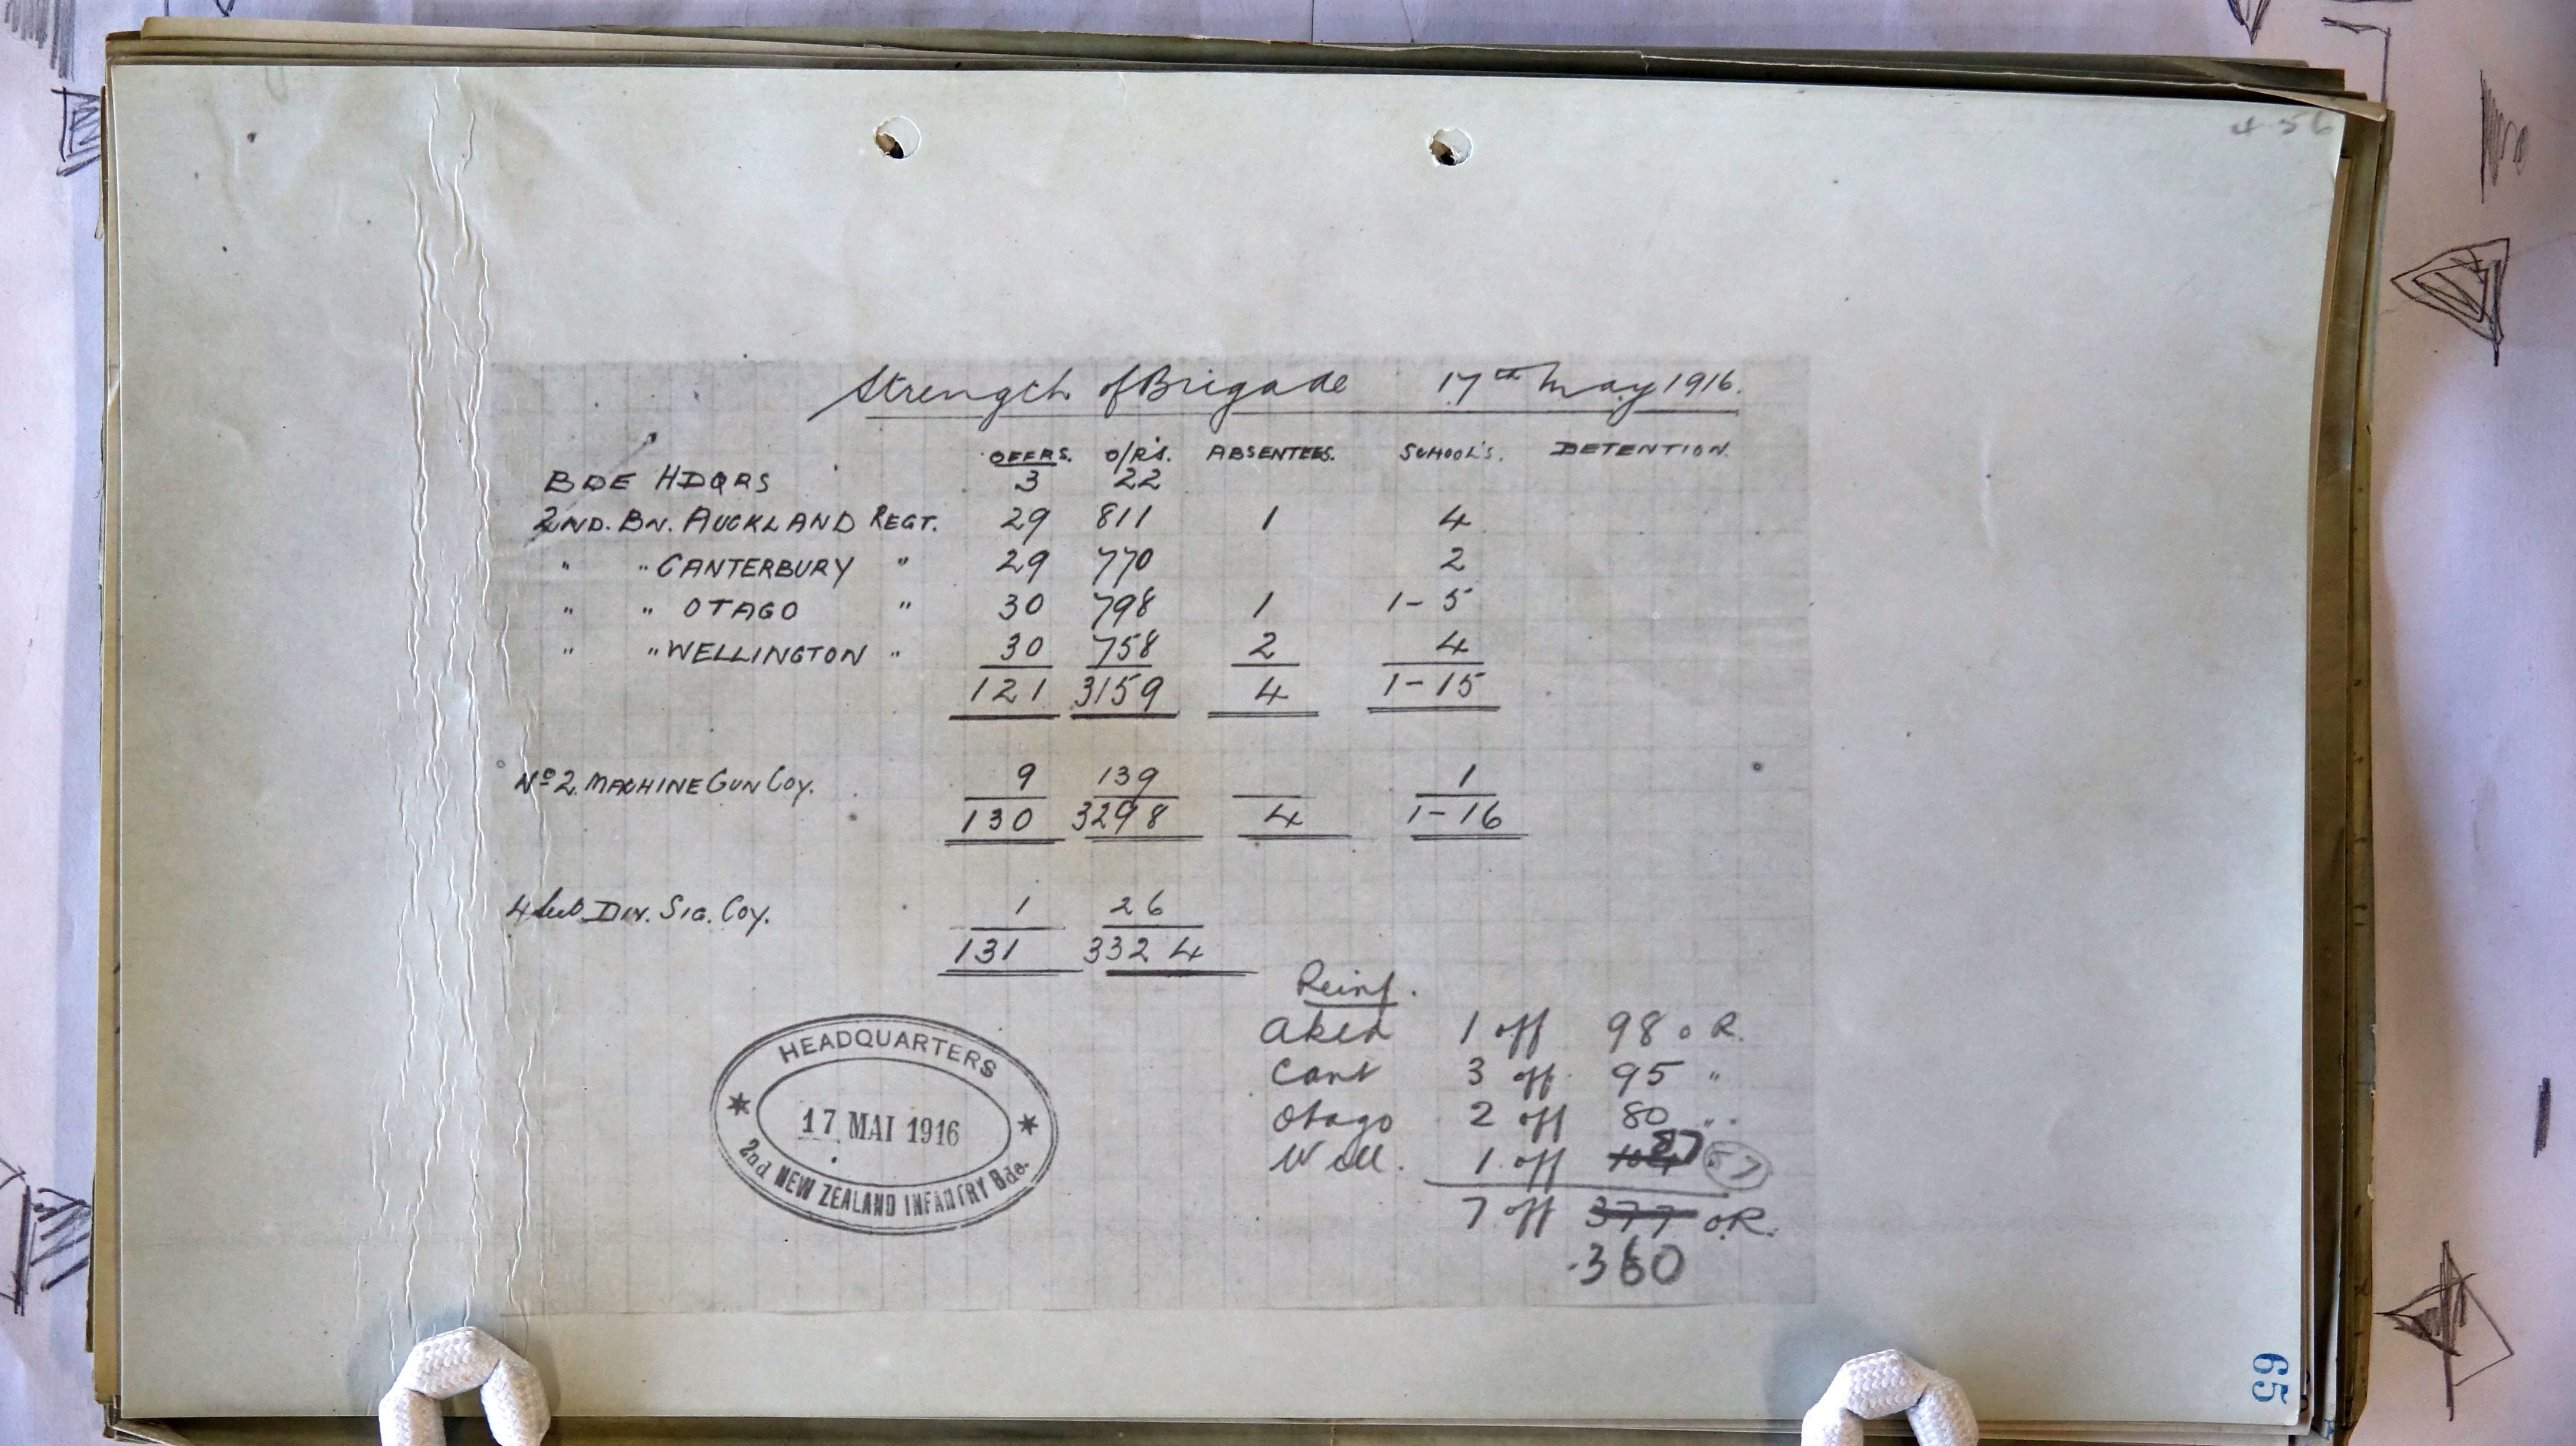 4 56
Strength of Brigade 17th May 1916.
OFFRS. O/R's. ABSENTEES. SCHOOL'S. DETENTION.
BDE HDQRS 3 22
2ND. BN. AUCKLAND REGT. 29 811 1 4
" " CANTERBURY " 29 770 2
" " OTAGO " 30 798 1 1-5
" " WELLINGTON " 30 758 2 4
121 3159 4 1-15
No 2. MACHINE GUN COY. 9 139 1
130 3298 4 1-16
4 DIV. SIG. COY. 1 26
131 3324
Reinf.
Akld 1 off 98 o R.
Cant 3 off 95 "
Otago 2 off 80 "
Well. 1 off 104 87 57
7 off 377 o.R.
360
HEADQUARTERS
17 MAI 1916
2nd NEW ZEALAND INFANTRY Bde.
65